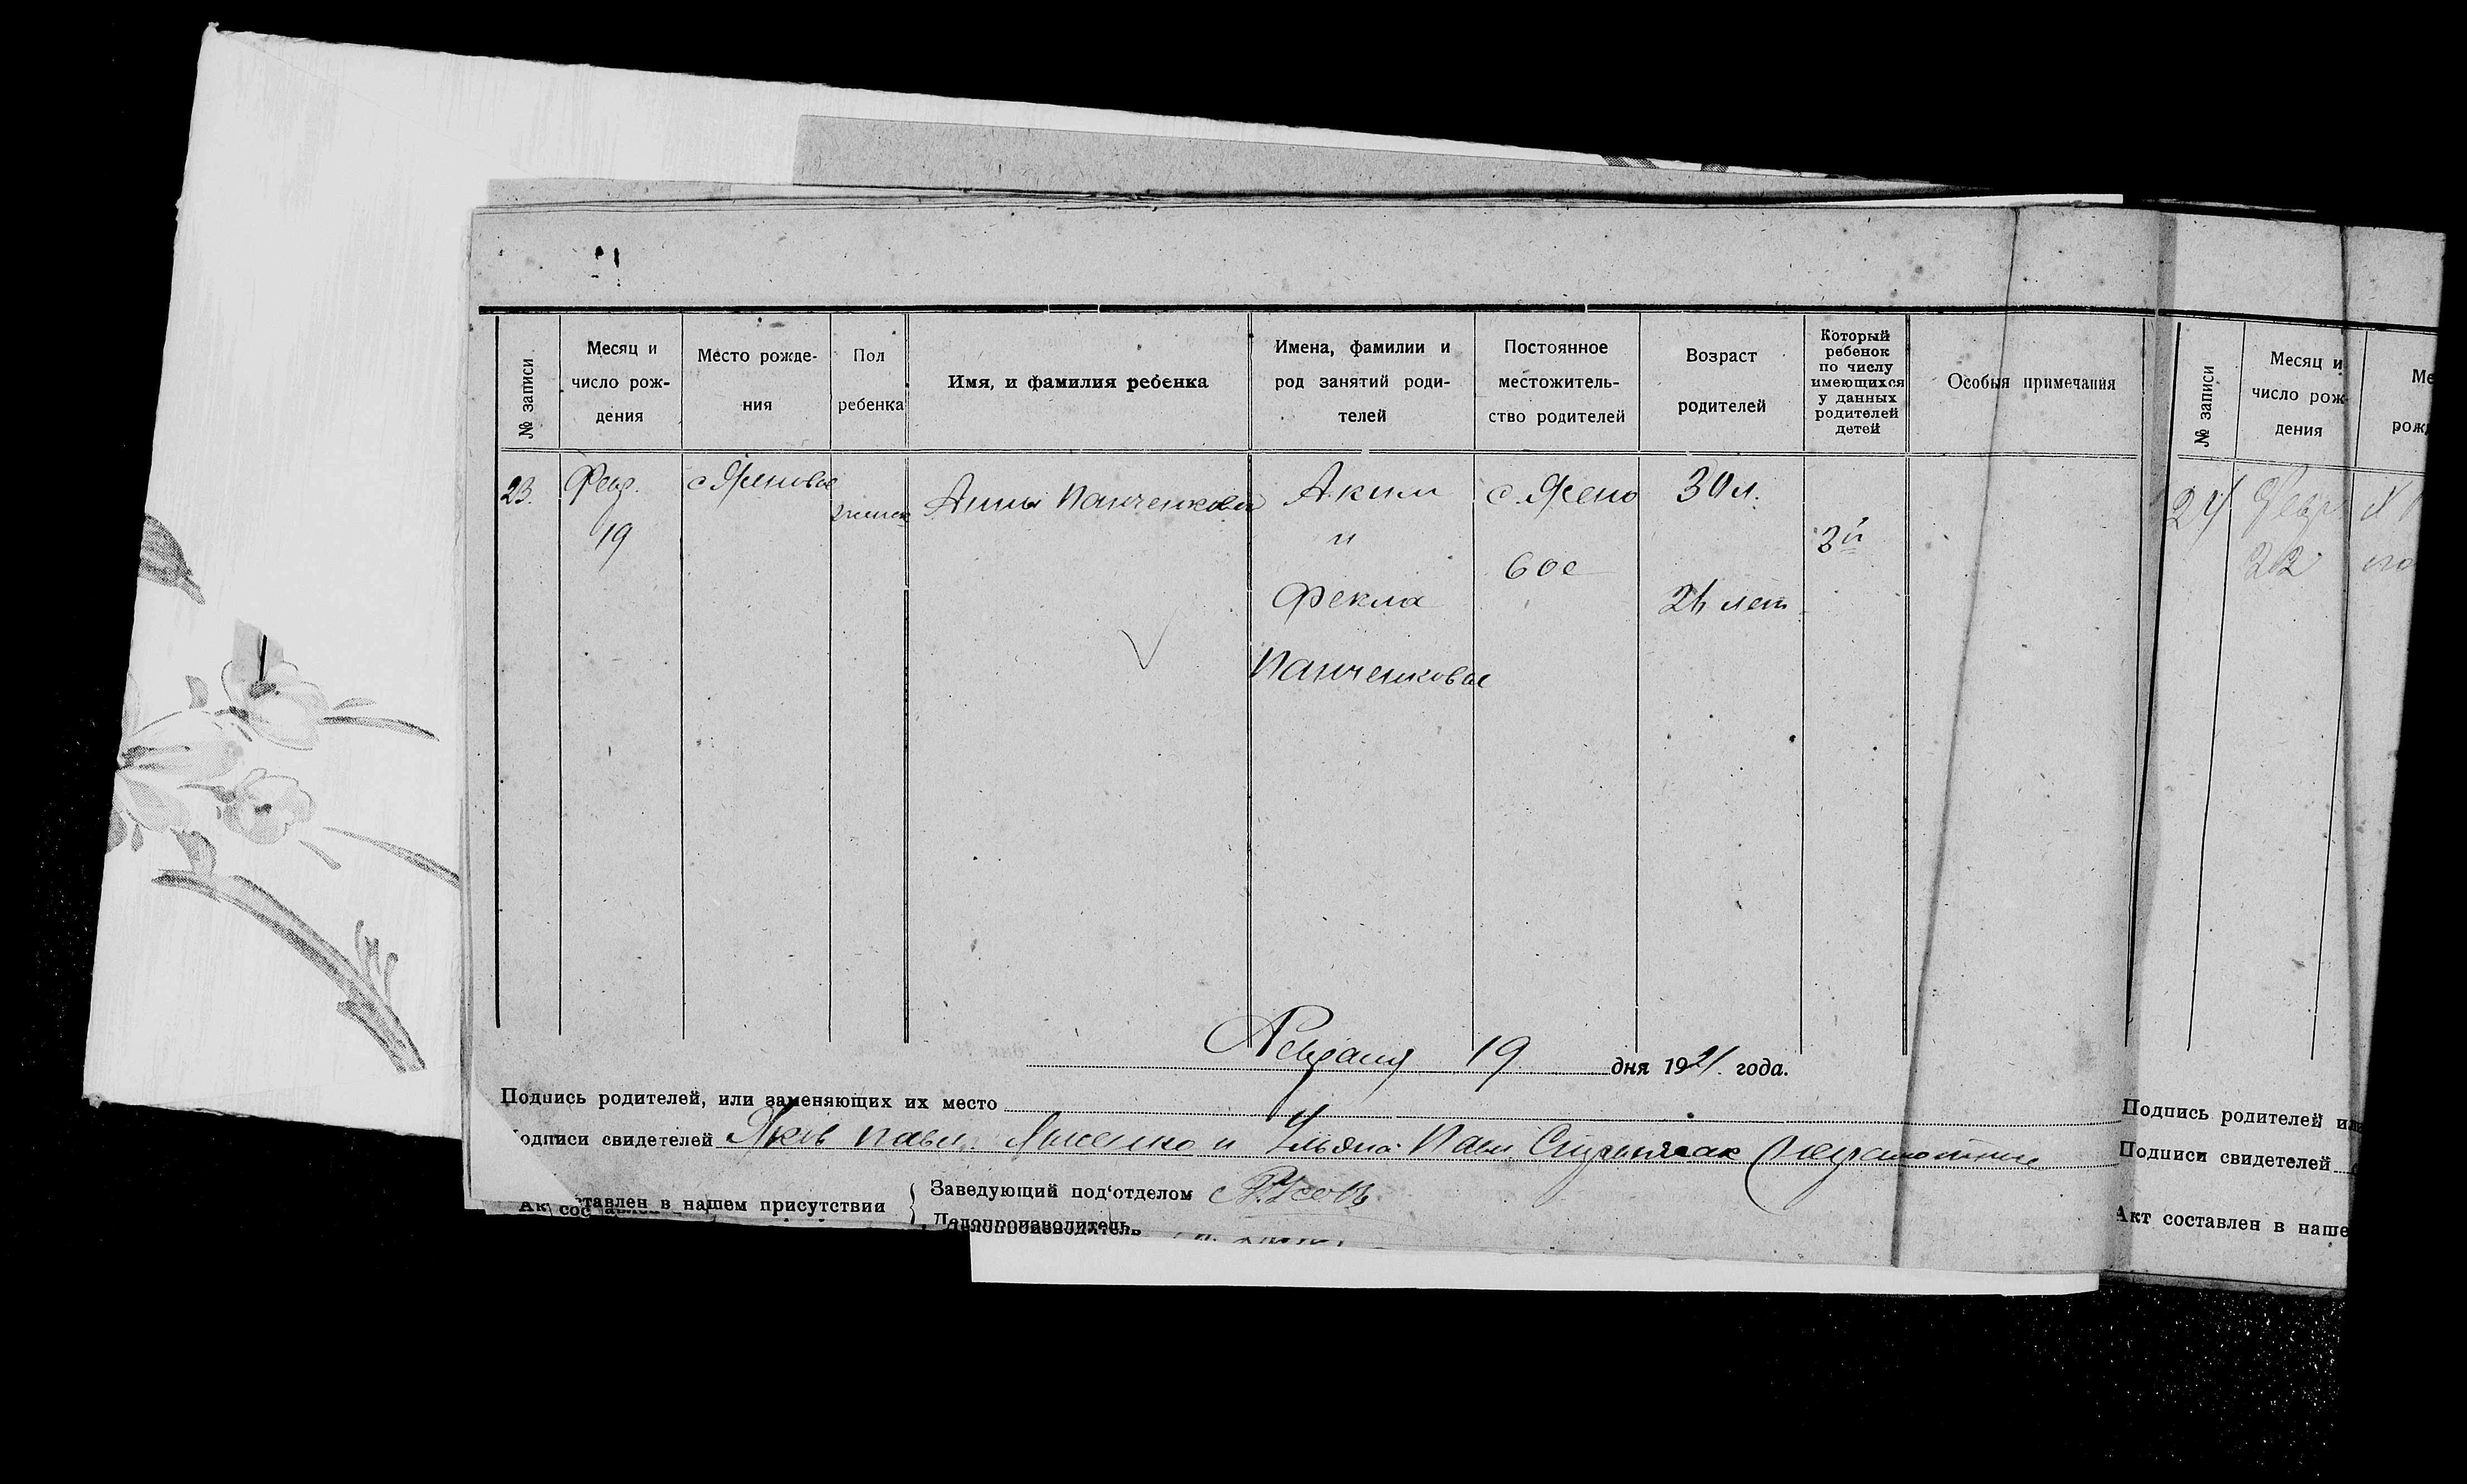 № записи
Месяц и
число рож-
дения
Место рожде-
ния
Пол
ребенка
Имя, и фамилия ребенка
Имена, фамилии и
род занятий роди-
телей
Постоянное
местожитель-
ство родителей
Возраст
родителей
Который
ребенок
по числу
имеющихся
у данных
родителей
детей
Особыя примечания
23.
Февр.
19
с. Ясеновое
женск
Анна Панченкова
Аким
и
Фекла
Панченковы
с. Ясено
вое
30 л.
24 лет
3й
Февраля 19 дня 1921 года.
Подпись родителей, или заменяющих их место
одписи свидетелей Яков Павл. и Ульяна Павл. неграмотные
Ак сос тавлен в нашем присутствии
Заведующий под'отделом
Делопроизводитель
№ записи
Месяц и
число рож-
дения
Ме
рож
24
Февр
22
Подпись родителей или
Подписи свидетелей
Акт составлен в наше